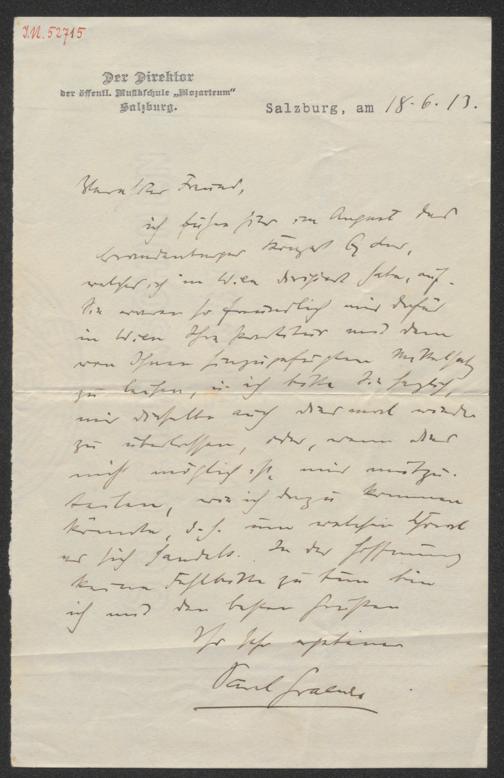 I.N. 52715
Der Direktor
der öffentl. Musikschule „Mozarteum“
Salzburg.
Salzburg, am 18.6.13.
Verehrter Freund,
ich führe hier im August das
brandenburger Konzert G dur,
welches ich in Wien dirigiert habe, auf.
Sie waren so freundlich mir dafür
in Wien Ihre Partitur mit dem
von Ihnen hinzugefügten Mittelsatz
zu leihen, u. ich bitte Sie herzlich,
mir dieselbe auch diesmal wieder
zu überlassen, oder, wenn dies
nicht möglich ist, mir mitzu-
teilen, wie ich dazu kommen
könnte, d.h. um welchen
es sich handelt. In der Hoffnung
keine Fehlbitte zu tun bin
ich mit den besten Grüßen
Ihr sehr ergebener
Paul Graener